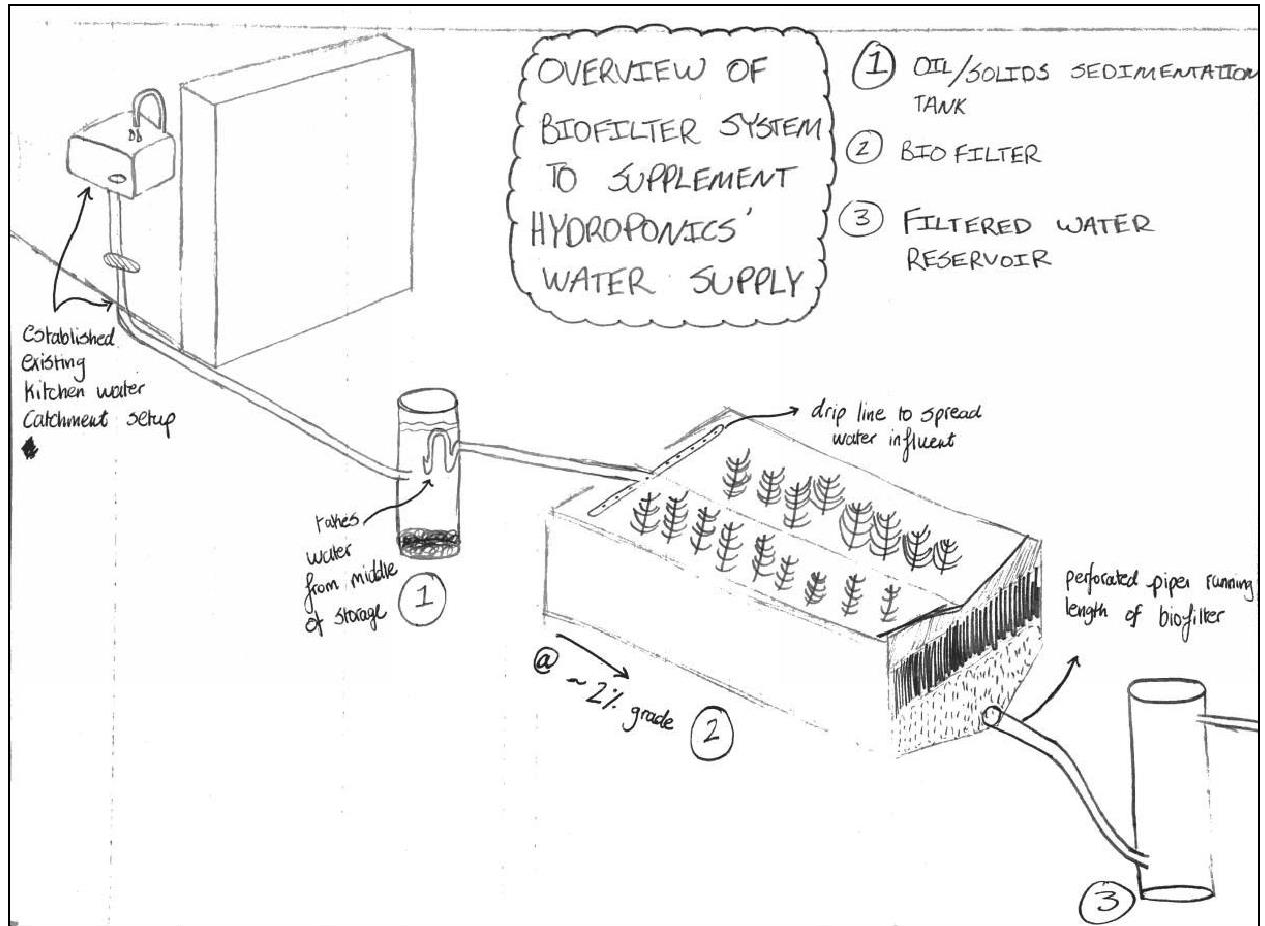 OVERVIEW OF
BIOFILTER SYSTEM
TO SUPPLEMENT
HYDROPONICS'
WATER SUPPLY
1 OIL/SOLIDS SEDIMENTATION
TANK
2 BIO FILTER
3 FILTERED WATER
RESERVOIR
Established
existing
Kitchen water
Catchment setup
takes
water
from middle
of storage
1
drip line to spread
water influent
@ ~ 2% grade
2
perforated piper running
length of biofilter
3